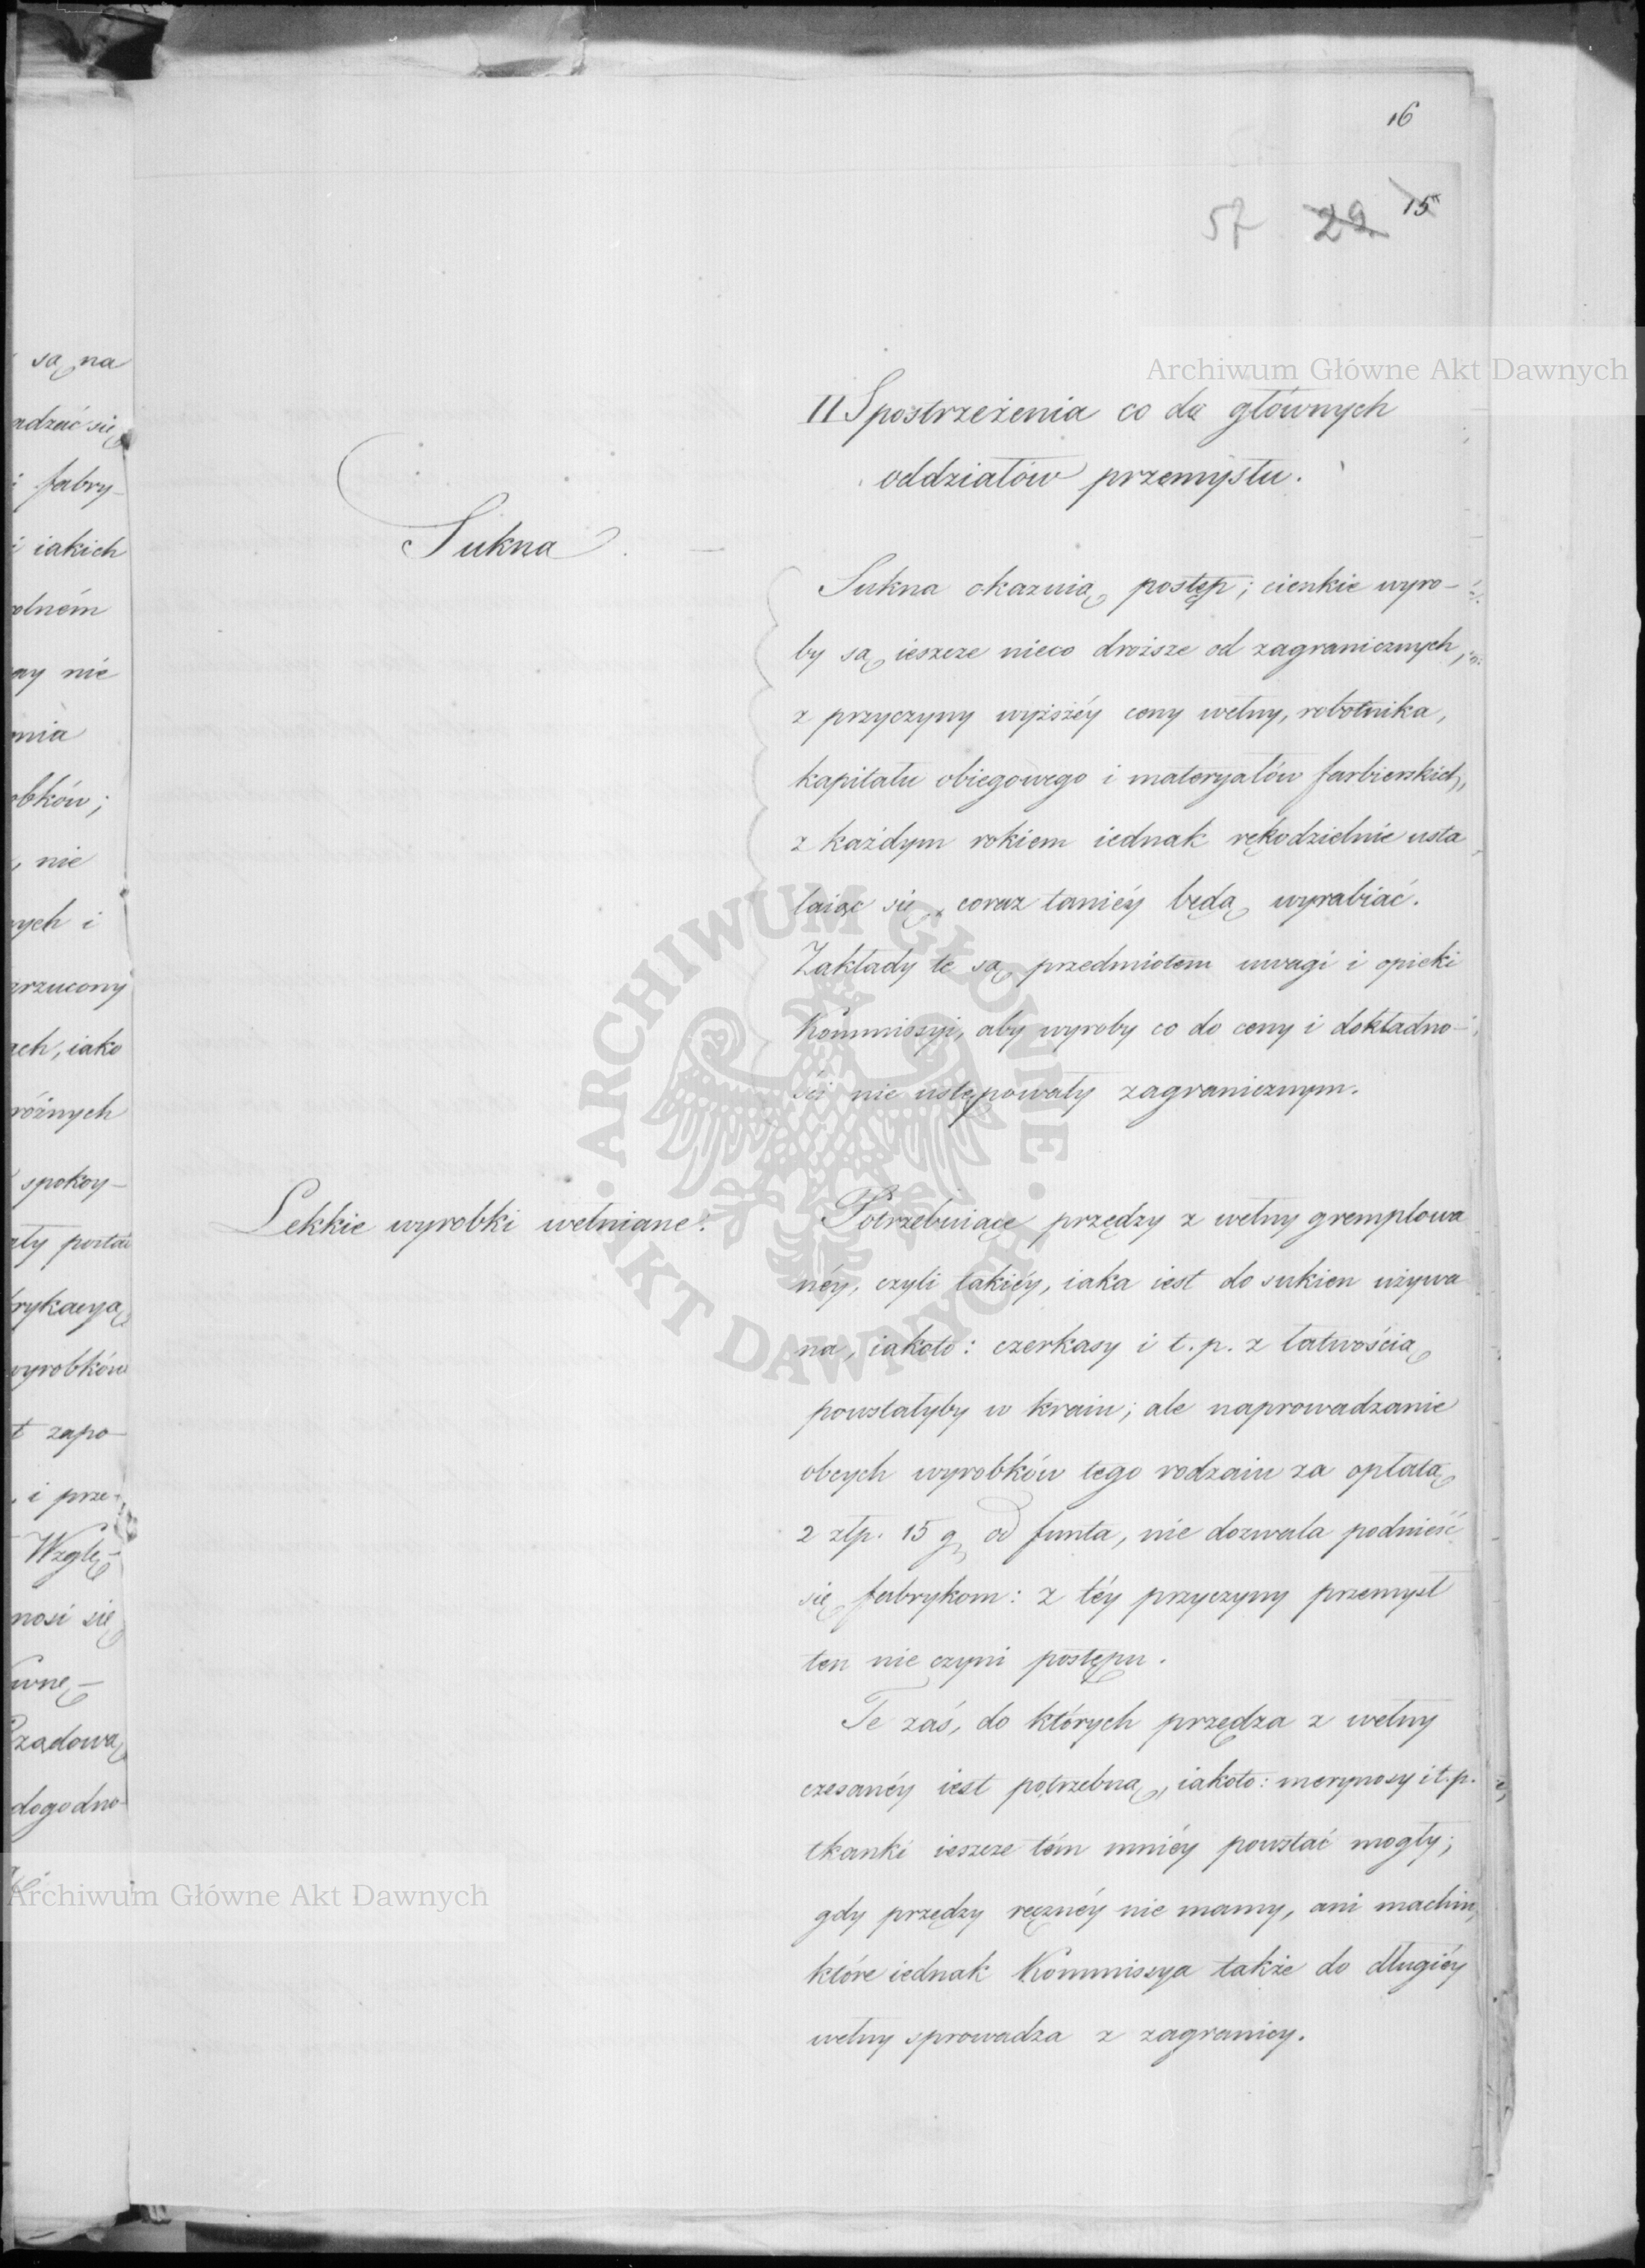 16
57 29 15
II Spostrzeżenia co do głównych
oddziałów przemysłu.
Sukna
Sukna okazuią postęp; cienkie wyro-
by są ieszcze nieco droższe od zagranicznych,
z przyczyny wyższéy ceny wełny, robotnika,
kapitału obiegowego i materyałów farbierskich,
z każdym rokiem iednak rękodzielnie usta
laiąc się, coraz taniéy będą wyrabiać.
Zakłady te są przedmiotem uwagi i opieki
Kommissyi, aby wyroby co do ceny i dokładno-
ści nie ustępowały zagranicznym.
Lekkie wyrobki wełniane.
Potrzebuiące przędzy z wełny gremplowa
néy, czyli takiéy, iaka iest do sukien używa
na, iakoto: czerkasy i t.p. z łatwością
powstałyby w kraiu; ale naprowadzanie
obcych wyrobków tego rodzaiu za opłatą
2 złp. 15 g od funta, nie dozwala podnieść
się fabrykom: z téy przyczyny przemysł
ten nie czyni postępu.
Te zaś, do których przędza z wełny
czesanéy iest potrzebną, iakoto: merynosy i t.p.
tkanki ieszcze tém mniéy powstać mogły;
gdy przędzy ręcznéy nie mamy, ani machin,
które iednak Kommissya także do długiéy
wełny sprowadza z zagranicy.
są na
adzać się
fabry-
i iakich
olném
ay nie
nia
obków;
, nie
ych i
arzucony
ach, iako
różnych
spokoy-
ały
rykacyą
wyrobków
t zapo-
i prze-
Wzglę-
nosi się
wnę-
Rządową
dogodno-
Archiwum Główne Akt Dawnych
ARCHIWUM GŁÓWNE AKT DAWNYCH
Archiwum Główne Akt Dawnych